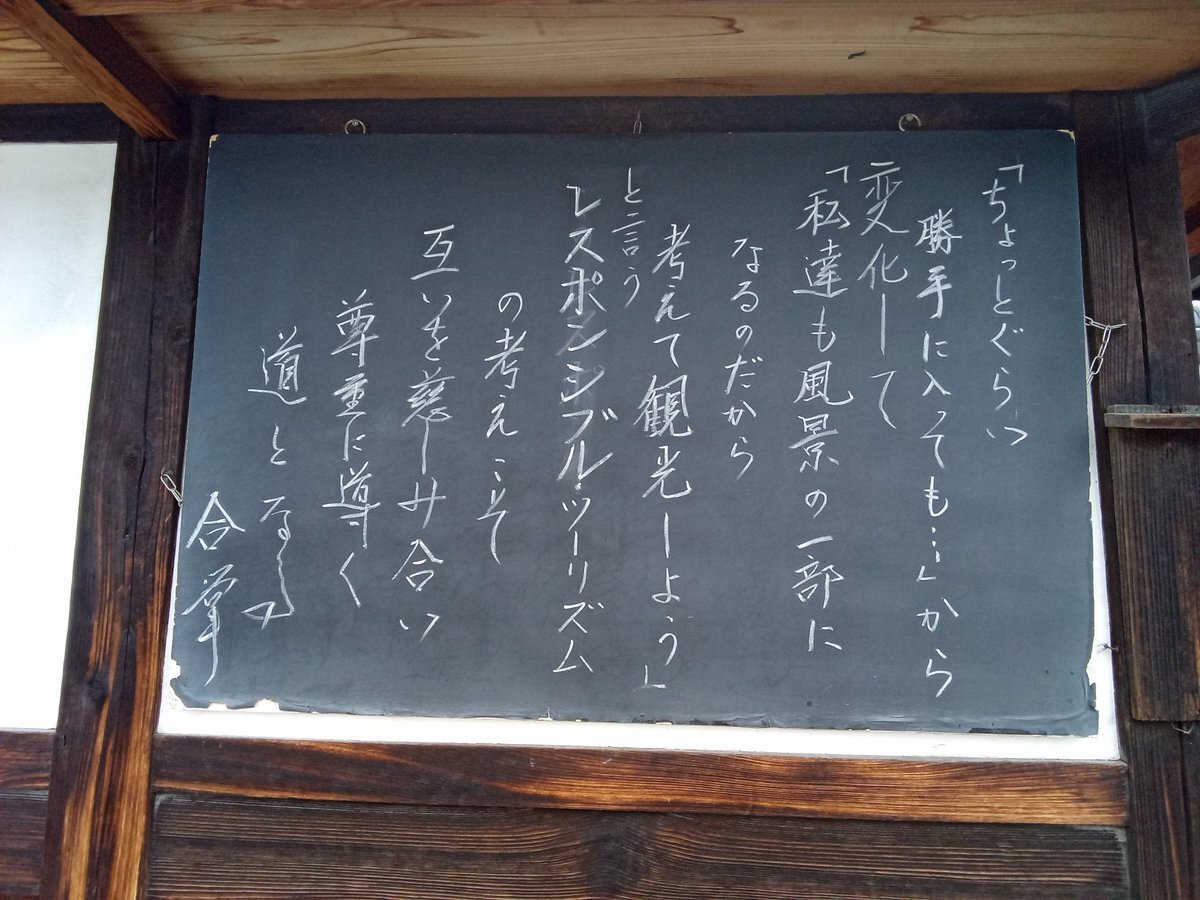 「ちょっとぐらい
勝手に入っても…」から
変化して
「私達も風景の一部に
なるのだから
考えて観光しよう」
と言う
レスポンシブル・ツーリズム
の考えこそ
互いを慈しみ合い
尊重に導く
道となる
合掌